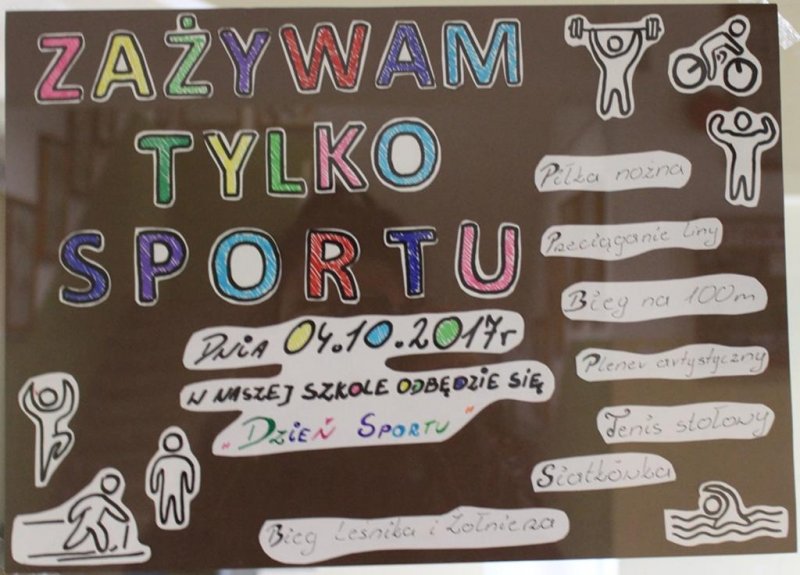 ZAŻYWAM
TYLKO
SPORTU
DNIA 04.10.2017r
W NASZEJ SZKOLE ODBĘDZIE SIĘ
"DZIEŃ SPORTU"
Piłka nożna
Przeciąganie liny
Bieg na 100m
Plener artystyczny
Tenis stołowy
Siatkówka
Bieg Leśnika i Żołnierza